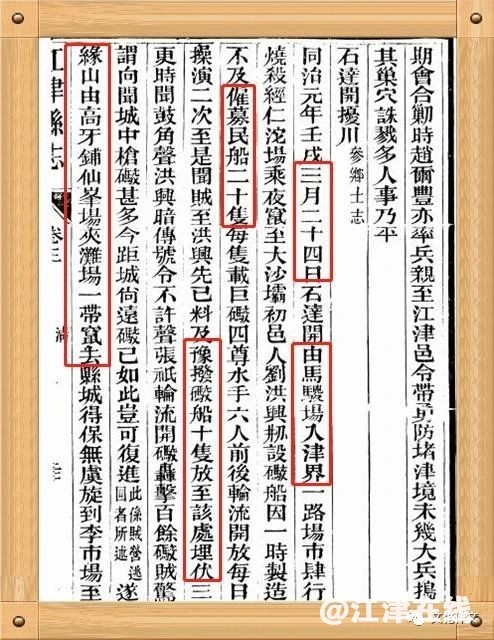 期會合勦時趙爾豐亦率兵親至江津邑令帶勇防堵津境未幾大兵搗
其巢穴誅戮多人事乃平
石達開擾川 參鄉土志
同治元年壬戌三月二十四日石達開由馬騣場入津界一路場市肆行
燒殺經仁沱場乘夜竄至大沙壩初邑人劉洪興刱設礮船因一時製造
不及僱募民船二十隻每隻載巨礮四尊水手六人前後輪流開放每日
操演二次至是聞賊至洪興先已料及豫撥礮船十隻放至該處埋伏三
更時聞鼓角聲洪興暗傳號令不許聲張祇輪流開礮轟擊百餘礮賊驚
謂向聞城中槍礮甚多今距城尚遠礮已如此豈可復進 此係賊營逃回者所述 遂
緣山由高牙鋪仙峯場夾灘場一帶竄去縣城得保無虞旋到李市場至
江津縣志 卷三
@江津在线